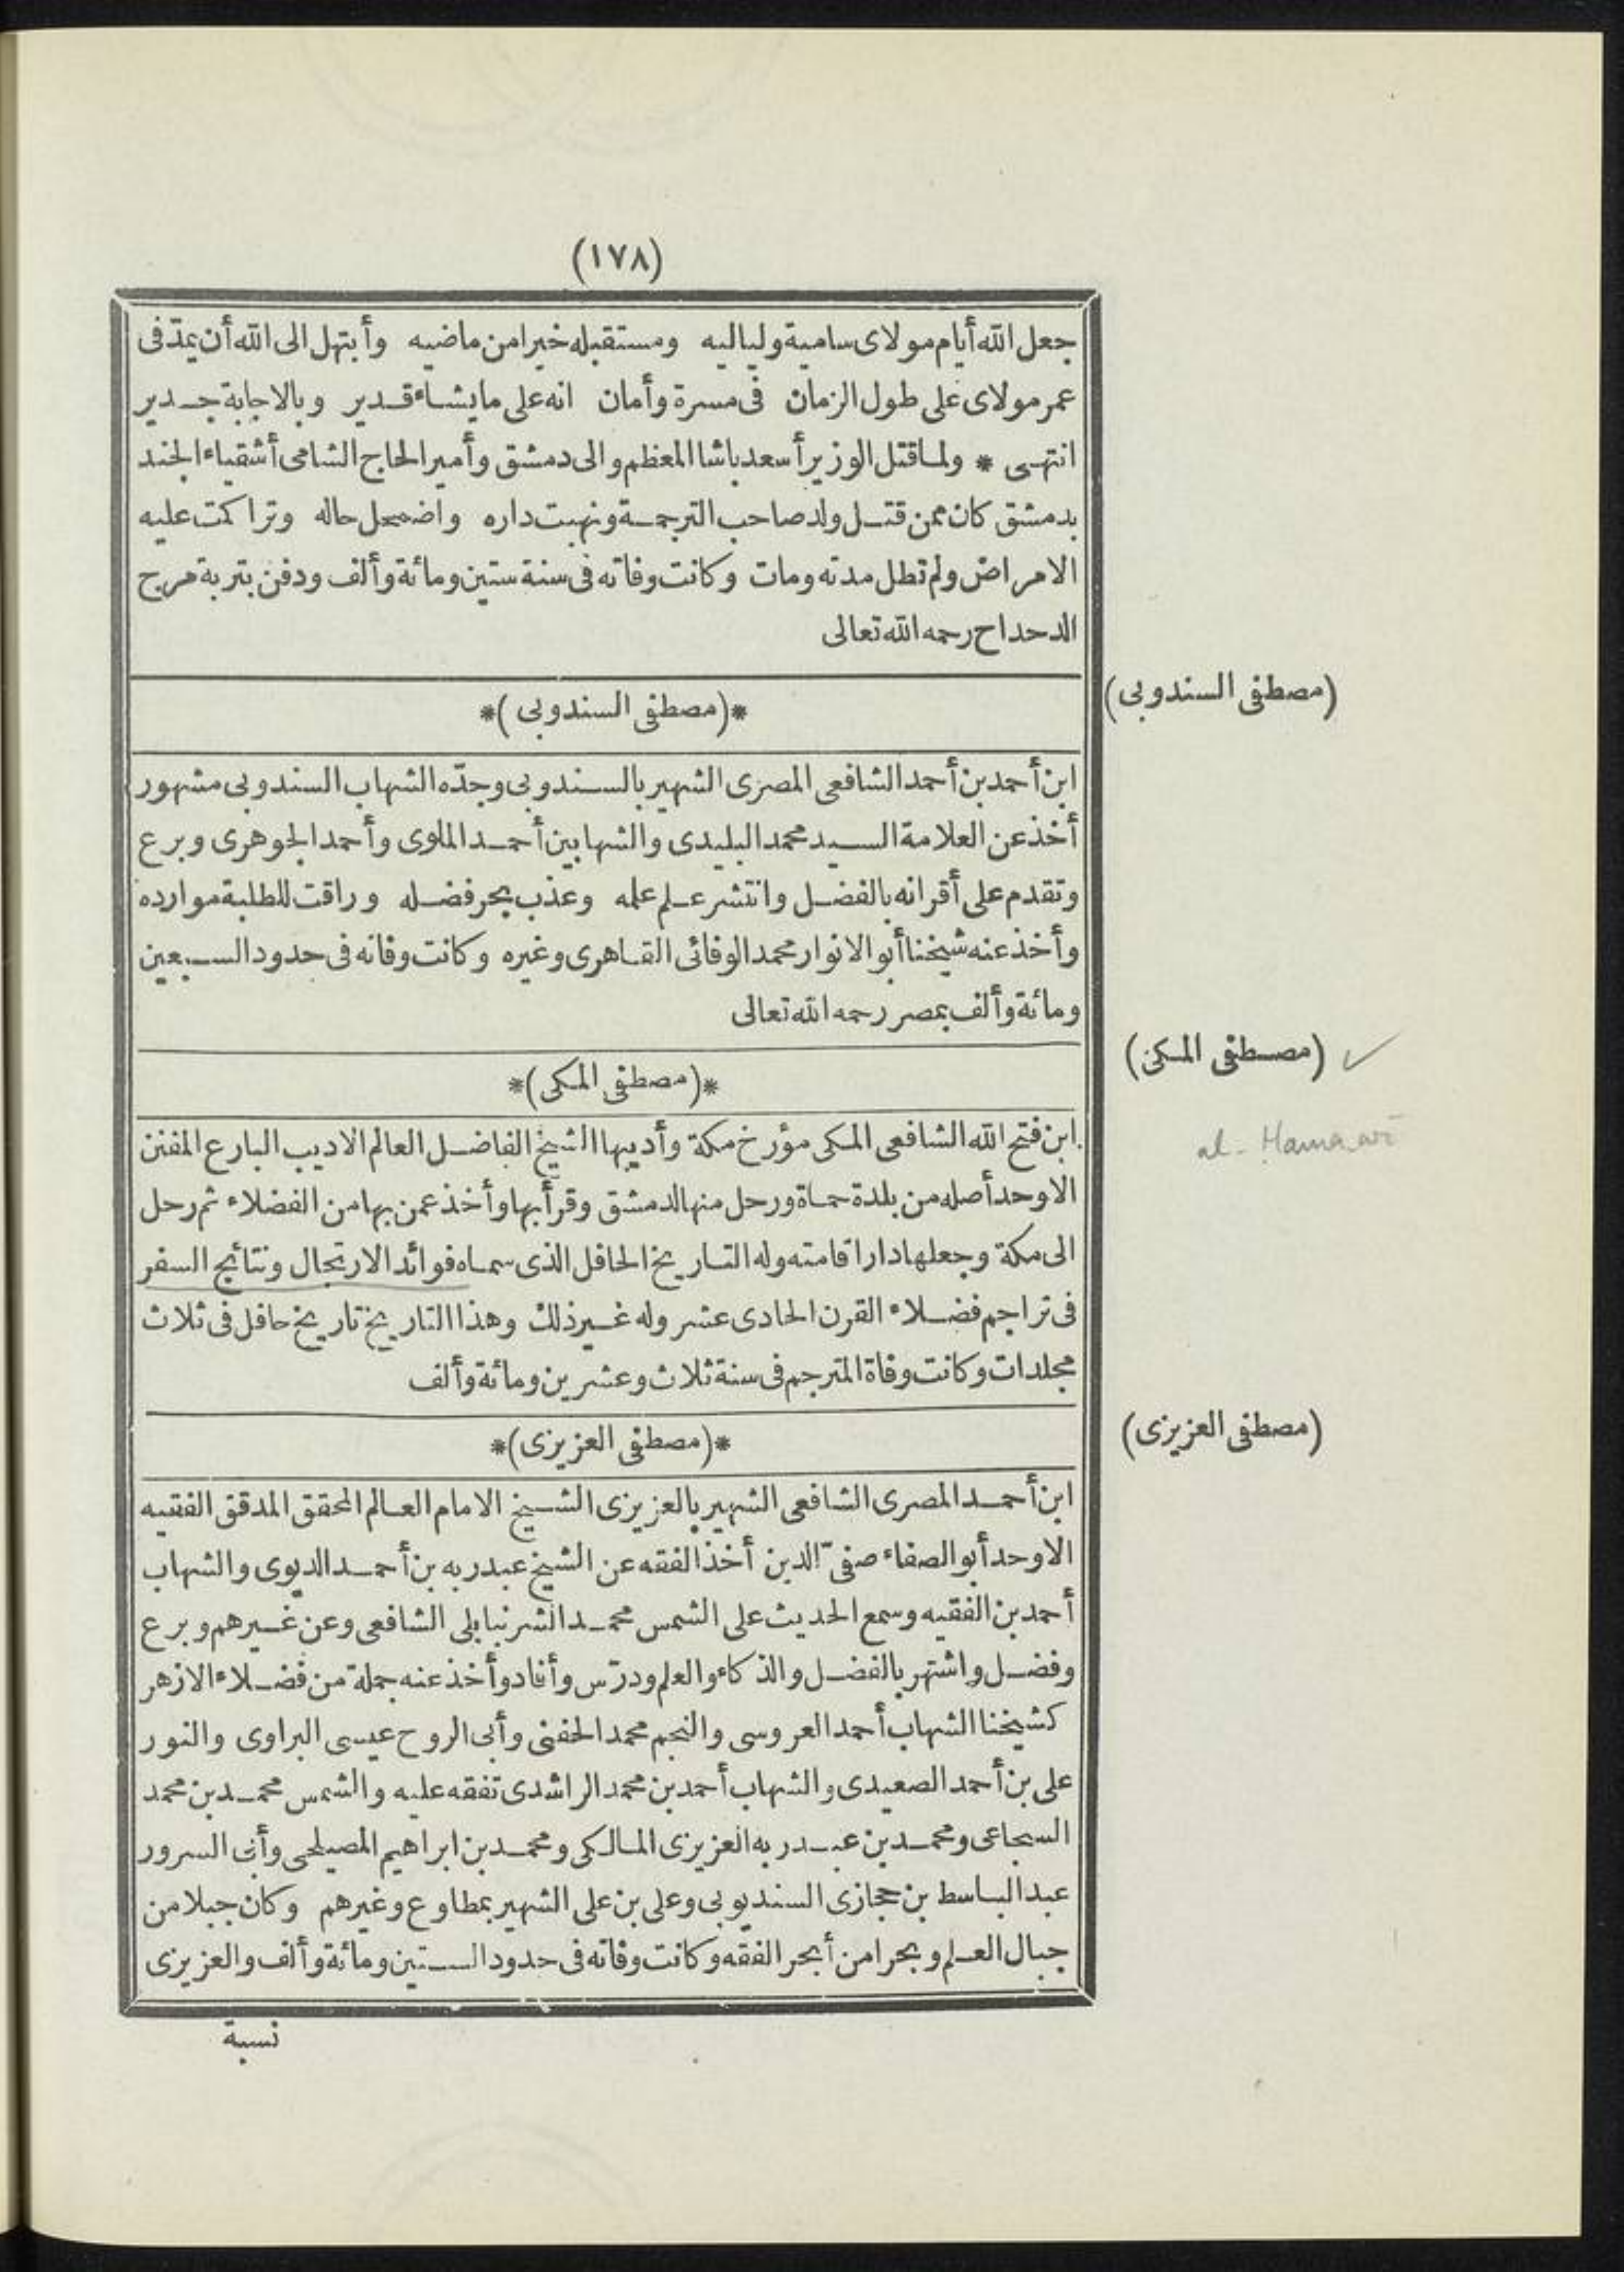 (١٧٨)
جعل الله أيام مولاى سامية ولياليه ومستقبله خيرا من ماضيه وأبتهل الى الله أن يمدّ فى
عمر مولاى على طول الزمان فى مسرة وأمان انه على ما يشاء قدير وبالاجابة جدير
انتهى * ولما قتل الوزير أسعد باشا المعظم والى دمشق وأمير الحاج الشامى أشقياء الجند
بدمشق كان ممن قتل ولد صاحب الترجمة ونهبت داره واضمحل حاله وتراكمت عليه
الامراض ولم تطل مدته ومات وكانت وفاته فى سنة ستين ومائة وألف ودفن بتربة مرج
الدحداح رحمه الله تعالى
(مصطفى السندوبى)
*(مصطفى السندوبى)*
ابن أحمد بن أحمد الشافعى المصرى الشهير بالسندوبى وجدّه الشهاب السندوبى مشهور
أخذ عن العلامة السيد محمد البليدى والشهابين أحمد الملوى وأحمد الجوهرى وبرع
وتقدم على أقرانه بالفضل وانتشر علم علمه وعذب بحر فضله وراقت للطلبة موارده
وأخذ عنه شيخنا أبو الانوار محمد الوفائى القاهرى وغيره وكانت وفاته فى حدود السبعين
ومائة وألف بمصر رحمه الله تعالى
(مصطفى المكى) ✓
*(مصطفى المكى)*
al-Hamawī
ابن فتح الله الشافعى المكى مؤرخ مكة وأديبها الشيخ الفاضل العالم الاديب البارع المفنن
الاوحد أصله من بلدة حماة ورحل منها لدمشق وقرأ بها وأخذ عمن بها من الفضلاء ثم رحل
الى مكة وجعلها دار اقامته وله التاريخ الحافل الذى سماه فوائد الارتحال ونتائج السفر
فى تراجم فضلاء القرن الحادى عشر وله غير ذلك وهذا التاريخ تاريخ حافل فى ثلاث
مجلدات وكانت وفاة المترجم فى سنة ثلاث وعشرين ومائة وألف
(مصطفى العزيزى)
*(مصطفى العزيزى)*
ابن أحمد المصرى الشافعى الشهير بالعزيزى الشيخ الامام العالم المحقق المدقق الفقيه
الاوحد أبو الصفاء صفىّ الدين أخذ الفقه عن الشيخ عبدربه بن أحمد الديوى والشهاب
أحمد بن الفقيه وسمع الحديث على الشمس محمد الشرنبابلى الشافعى وعن غيرهم وبرع
وفضل واشتهر بالفضل والذكاء والعلم ودرّس وأفاد وأخذ عنه جملة من فضلاء الازهر
كشيخنا الشهاب أحمد العروسى والنجم محمد الحفنى وأبى الروح عيسى البراوى والنور
على بن أحمد الصعيدى والشهاب أحمد بن محمد الراشدى تفقه عليه والشمس محمد بن محمد
السجاعى ومحمد بن عبدربه العزيزى المالكى ومحمد بن ابراهيم المصيلحى وأبى السرور
عبد الباسط بن حجازى السنديوبى وعلى بن على الشهير بمطاوع وغيرهم وكان جبلا من
جبال العلم وبحرا من أبحر الفقه وكانت وفاته فى حدود الستين ومائة وألف والعزيزى
نسبة